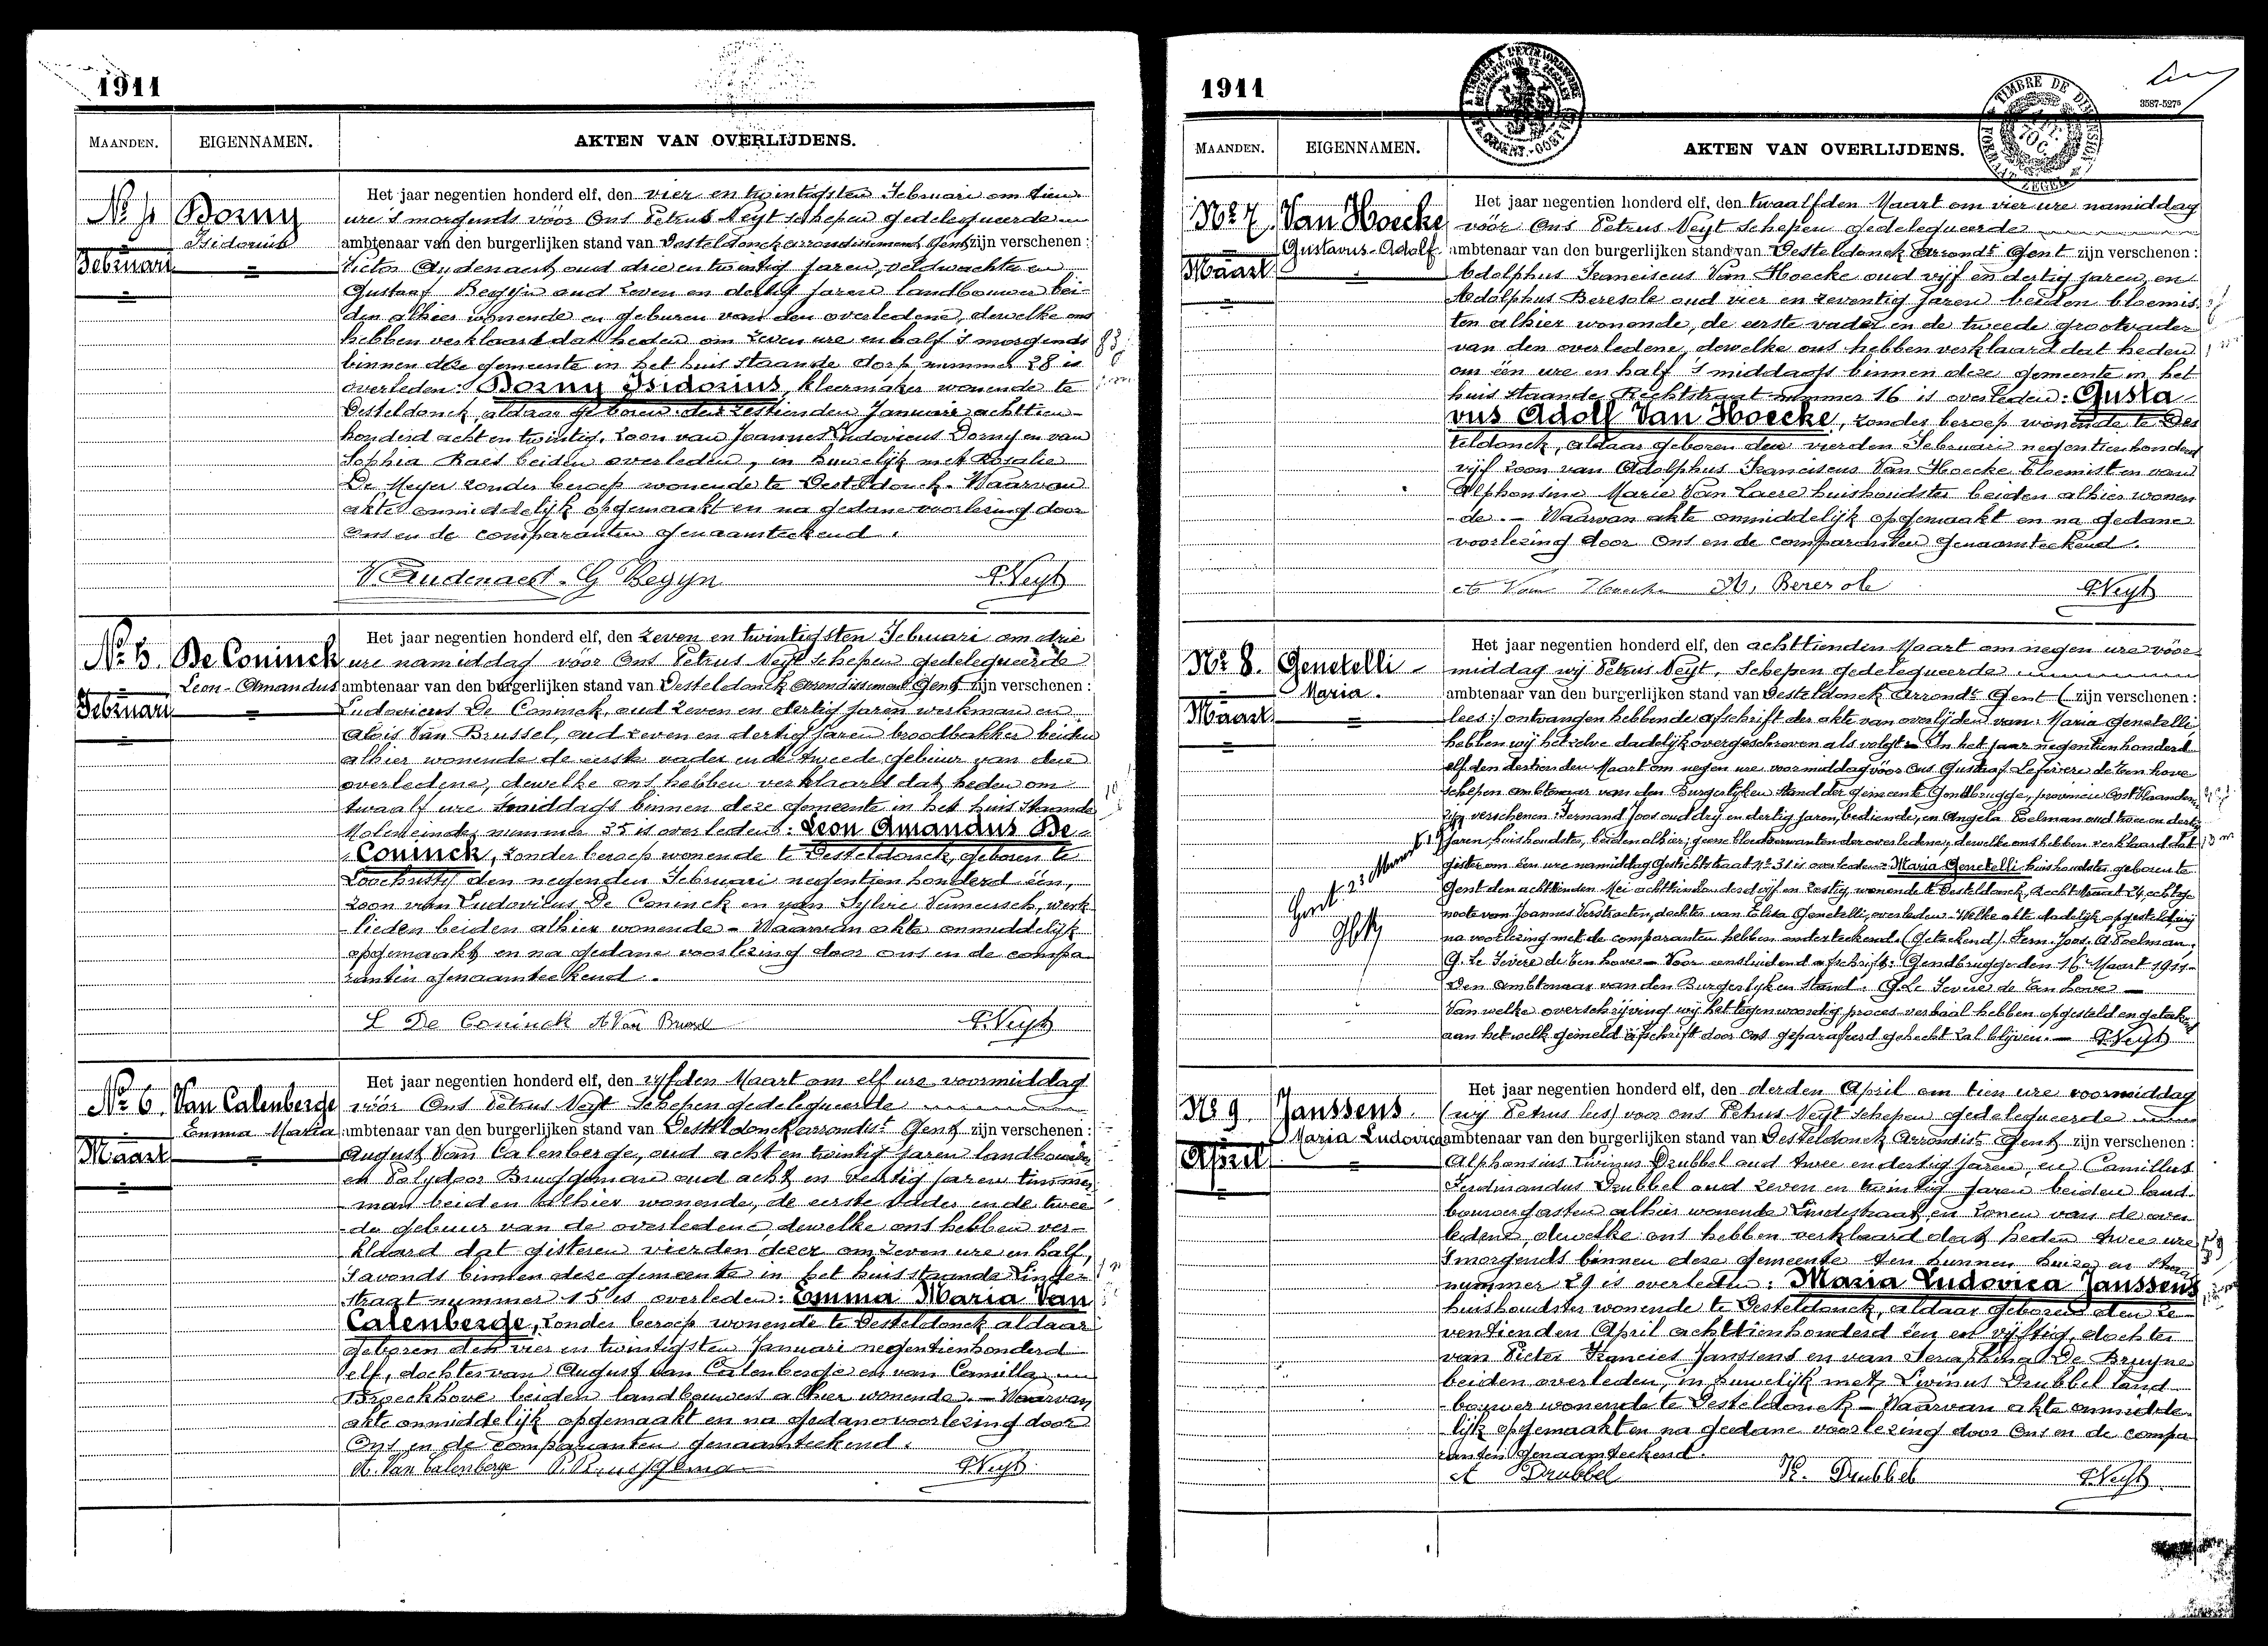 1911
MAANDEN. EIGENNAMEN. AKTEN VAN OVERLIJDENS.
No 4 Dorny
Isidorius
Februari
Het jaar negentien honderd elf, den vier en twintigsten Februari om tien
ure 's morgends vóór Ons Petrus Neyt schepen gedelegueerde
ambtenaar van den burgerlijken stand van Desteldonck arrondissement Gent zijn verschenen:
Victor Audenaert oud drie en twintig jaren, veldwachter en
Gustaaf Begyn oud zeven en dertig jaren landbouwer bei-
den alhier wonende en geburen van den overledene, dewelke ons
hebben verklaard dat heden om zeven ure en half 's morgends
binnen deze gemeente in het huis staande dorp nummer 28 is
overleden: Dorny Isidorius, kleermaker wonende te
Desteldonck, aldaar geboren den zestienden Januari achttien-
honderd acht en twintig, zoon van Joannes Ludovicus Dorny en van
Sophia Raes beiden overleden, in huwelijk met Rosalie
De Meyer zonder beroep wonende te Desteldonck. Waarvan
akte onmiddelijk opgemaakt en na gedane voorlezing door
ons en de comparanten genaamteekend.
V. Audenaert. G Begyn PNeyt
No 5. De Coninck
Leon-Amandus
Februari
Het jaar negentien honderd elf, den zeven en twintigsten Februari om drie
ure namiddag vóór Ons Petrus Neyt schepen gedelegueerde
ambtenaar van den burgerlijken stand van Desteldonck arrondissement Gent zijn verschenen:
Ludovicus De Coninck, oud zeven en dertig jaren werkman en
Alois Van Brussel, oud zeven en dertig jaren broodbakker beiden
alhier wonende de eerste vader en de tweede gebuur van den
overledene, dewelke ons hebben verklaard dat heden om
twaalf ure smiddags binnen deze gemeente in het huis staande
Moleneinde nummer 35 is overleden: Leon Amandus De
Coninck, zonder beroep wonende te Desteldonck, geboren te
Loochristy den negenden Februari negentien honderd één,
zoon van Ludovicus De Coninck en van Sylvie Vameusch, werk
lieden beiden alhier wonende - Waarvan akte onmiddelijk
opgemaakt en na gedane voorlezing door ons en de compa
ranten genaamteekend.
L De Coninck A Van Brussel PNeyt
No 6. Van Calenberge
Emma Maria
Maart
Het jaar negentien honderd elf, den vyfden Maart om elf ure voormiddag
vóór Ons Petrus Neyt Schepen gedelegueerde
ambtenaar van den burgerlijken stand van Desteldonck arrondist Gent zijn verschenen:
August Van Calenberge, oud acht en twintig jaren landbouwer
en Polydoor Bruggeman oud acht en dertig jaren timmer
man beiden alhier wonende, de eerste vader en de twee
de gebuur van de overledene dewelke ons hebben ver-
klaard dat gisteren vierden dezer om zeven ure en half,
's avonds binnen deze gemeente in het huis staande Linde-
straat nummer 15 is overleden: Emma Maria Van
Calenberge, zonder beroep wonende te Desteldonck aldaar
geboren den vier en twintigsten Januari negentienhonderd
elf, dochter van August Van Calenberge en van Camilla
Broeckhove beiden landbouwers alhier wonende. - Waarvan
akte onmiddelijk opgemaakt en na gedane voorlezing door
Ons en de comparanten genaamteekend.
A. Van Calenberge P. Bruggeman PNeyt
1911
3587-5275
TIMBRE DE DIMENSION
MAANDEN. EIGENNAMEN. AKTEN VAN OVERLIJDENS.
No 7. Van Hoecke
Gustavus-Adolf
Maart
Het jaar negentien honderd elf, den twaalfden Maart om vier ure namiddag
vóór Ons Petrus Neyt Schepen gedelegueerde
ambtenaar van den burgerlijken stand van Desteldonck Arrondt Gent zijn verschenen:
Adolphus Franciscus Van Hoecke oud vijf en dertig jaren, en
Adolphus Beresole oud vier en zeventig jaren beiden bloemis
ten alhier wonende, de eerste vader en de tweede grootvader
van den overledene, dewelke ons hebben verklaard dat heden
om één ure en half 's middags binnen deze gemeente in het
huis staande Rechtstraat nummer 16 is overleden: Gusta
vus Adolf Van Hoecke, zonder beroep wonende te Des
teldonck, aldaar geboren den vierden Februari negentien honderd
vijf zoon van Adolphus Franciscus Van Hoecke bloemist en van
Alphonsine Marie Van Laere huishoudster beiden alhier wonen
de. - Waarvan akte onmiddelijk opgemaakt en na gedane
voorlezing door Ons en de comparanten genaamteekend.
A Van Hoecke A. Beresole PNeyt
No 8. Genetelli
Maria.
Maart
Het jaar negentien honderd elf, den achttienden Maart om negen ure vóór
middag wij Petrus Neyt, Schepen gedelegueerde
ambtenaar van den burgerlijken stand van Desteldonck Arrondt Gent ( zijn verschenen:
lees:) ontvangen hebbende afschrift der akte van overlijden van: Maria Genetelli
hebben wij hetzelve dadelijk overgeschreven als volgt - In het jaar negentien honderd
elf den dertienden Maart om negen ure voormiddag vóór Ons Gustaaf Lefevere de Ten hove
schepen ambtenaar van den Burgerlijken Stand der gemeente Gendbrugge, provincie Oost Vlaanderen,
zijn verschenen: Fernand Joos oud dry en dertig jaren, bediende, en Angela Poelman oud twee en dertig
jaren, huishoudster, beiden alhier; geene bloedverwanten der overledene, dewelke ons hebben verklaard dat
gister om één ure namiddag Gestichtstraat No 31 is overleden Maria Genetelli huishoudster geboren te
Gent den achttienden Mei achttienhonderd vijf en zestig, wonende te Desteldonck, Rechtstraat 24 echtge
noote van Joannes Verstraeten, dochter van Elisa Genetelli, overleden - Welke akte dadelijk opgesteld wij
na voorlezing met de comparanten hebben onderteekend. (Geteekend) Fern. Joos. A Poelman.
G. Le Fevere de Ten hove - Voor eensluidend afschrift: Gendbrugge den 16 Maart 1911-
Den Ambtenaar van den Burgerlyken Stand. G. Le Fevere de Ten hove -
Van welke overschrijving wij het tegenwoordig proces verbaal hebben opgesteld en geteekend
aan het welk gemeld afschrift door Ons geparafeerd gehecht zal blijven. - PNeyt
No 9. Janssens.
Maria Ludovica
April
Het jaar negentien honderd elf, den derden April om tien ure voormiddag
(wij Petrus lees) voor ons Petrus Neyt schepen gedelegueerde
ambtenaar van den burgerlijken stand van Desteldonck Arrondist Gent zijn verschenen:
Alphonsius Livinus Drubbel oud twee en dertig jaren, en Camillus
Ferdinandus Drubbel oud zeven en twintig jaren beiden land
bouwergasten alhier wonende Lindestraat en zonen van de over
ledene, dewelke ons hebben verklaard dat heden twee ure
's morgends binnen deze gemeente ten hunnen huize en
nummer 29 is overleden: Maria Ludovica Janssens
huishoudster wonende te Desteldonck, aldaar geboren den ze
ventienden April achttienhonderd één en vijftig, dochter
van Pieter Francies Janssens en van Seraphina De Bruyne
beiden overleden, in huwelijk met Livinus Drubbel land
bouwer wonende te Desteldonck - Waarvan akte onmidde-
lijk opgemaakt en na gedane voorlezing door Ons en de compa
ranten genaamteekend.
A Drubbel K. Drubbel PNeyt